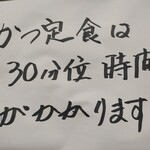 かつ定食は
30分位 時間
がかかります